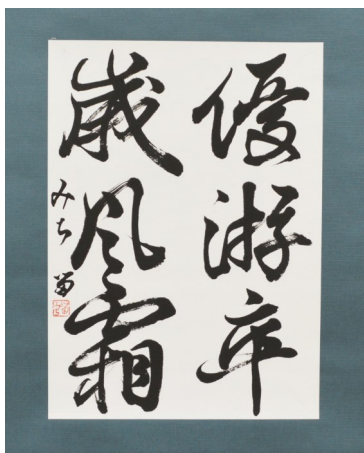 優游卒
歳風霜
みち